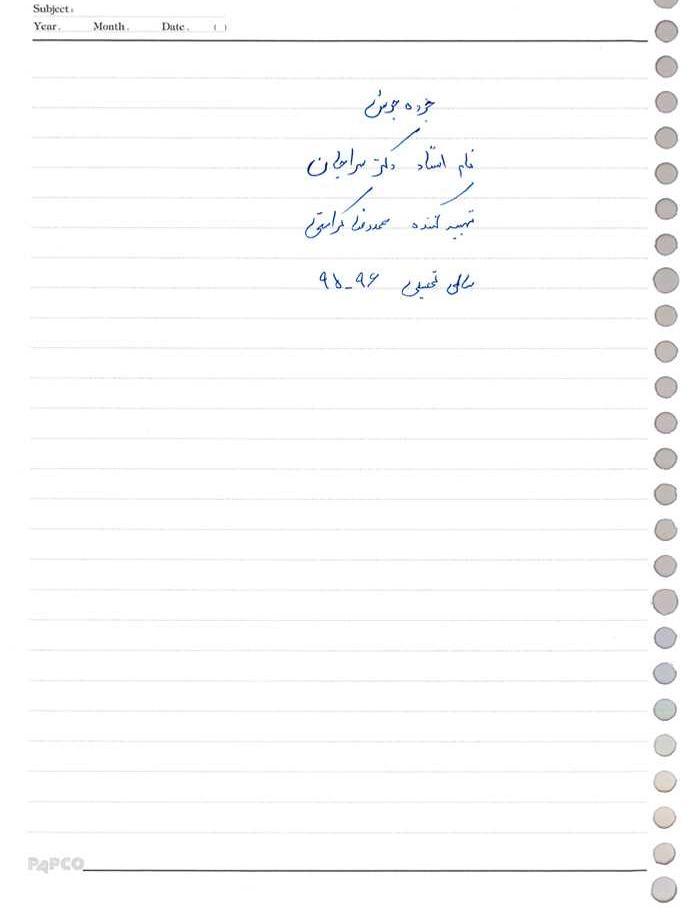 Subject:
Year. Month. Date. ( )
جزوه جوش
نام استاد دکتر
تهیه کننده محمدرضا
سال تحصیلی ۹۶-۹۵
PAPCO